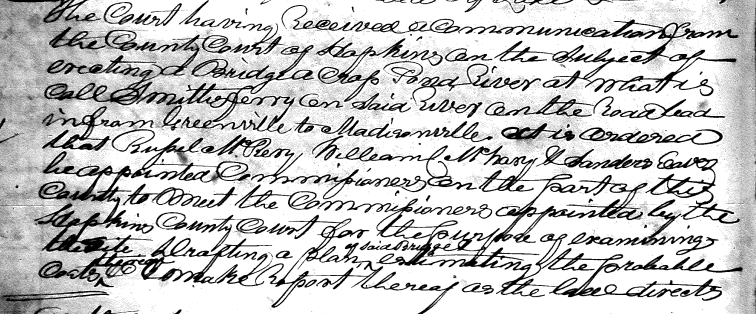 The Court having Received a Communication from
the County Court of Hopkins on the Subject of
erecting a Bridge a Crops Pond River at what is
Call Smiths ferry on said river on the Road lead
ing from Greenville to Madisonville. It is ordered
that Rupel McRery, William C. McNary & Sanders Eaves
be appointed Commissioners on the part of this
County to meet the Commissioners appointed by the
Hopkins County Court for the purpose of examining
the site & Drafting a plan of said Bridge & estimating the probable
Costs thereof & to make Report thereof as the law directs